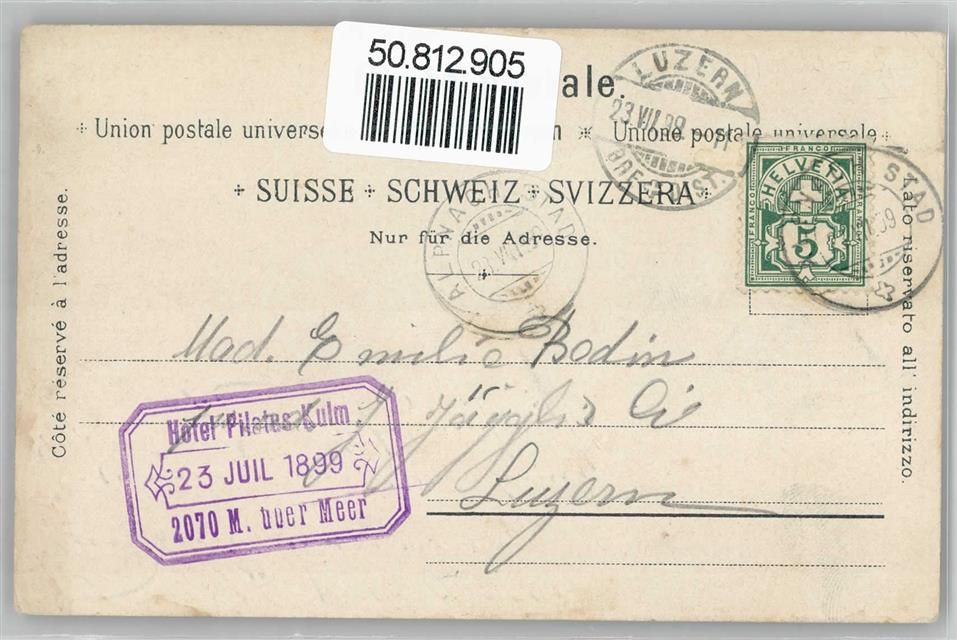 50.812.905
ale.
Union postale universe n * Unione postale universale
SUISSE SCHWEIZ SVIZZERA
Nur für die Adresse.
Côté réservé à l'adresse.
Lato riservato all' indirizzo.
LUZERN
23.VII.99
FRANCO
HELVETIA
FRANCO
5
STAD
ALPNA STAD
23.VII.99
Mad. Emilie Bodin
Luzern
Hotel Pilatus-Kulm
23 JUIL 1899
2070 M. über Meer